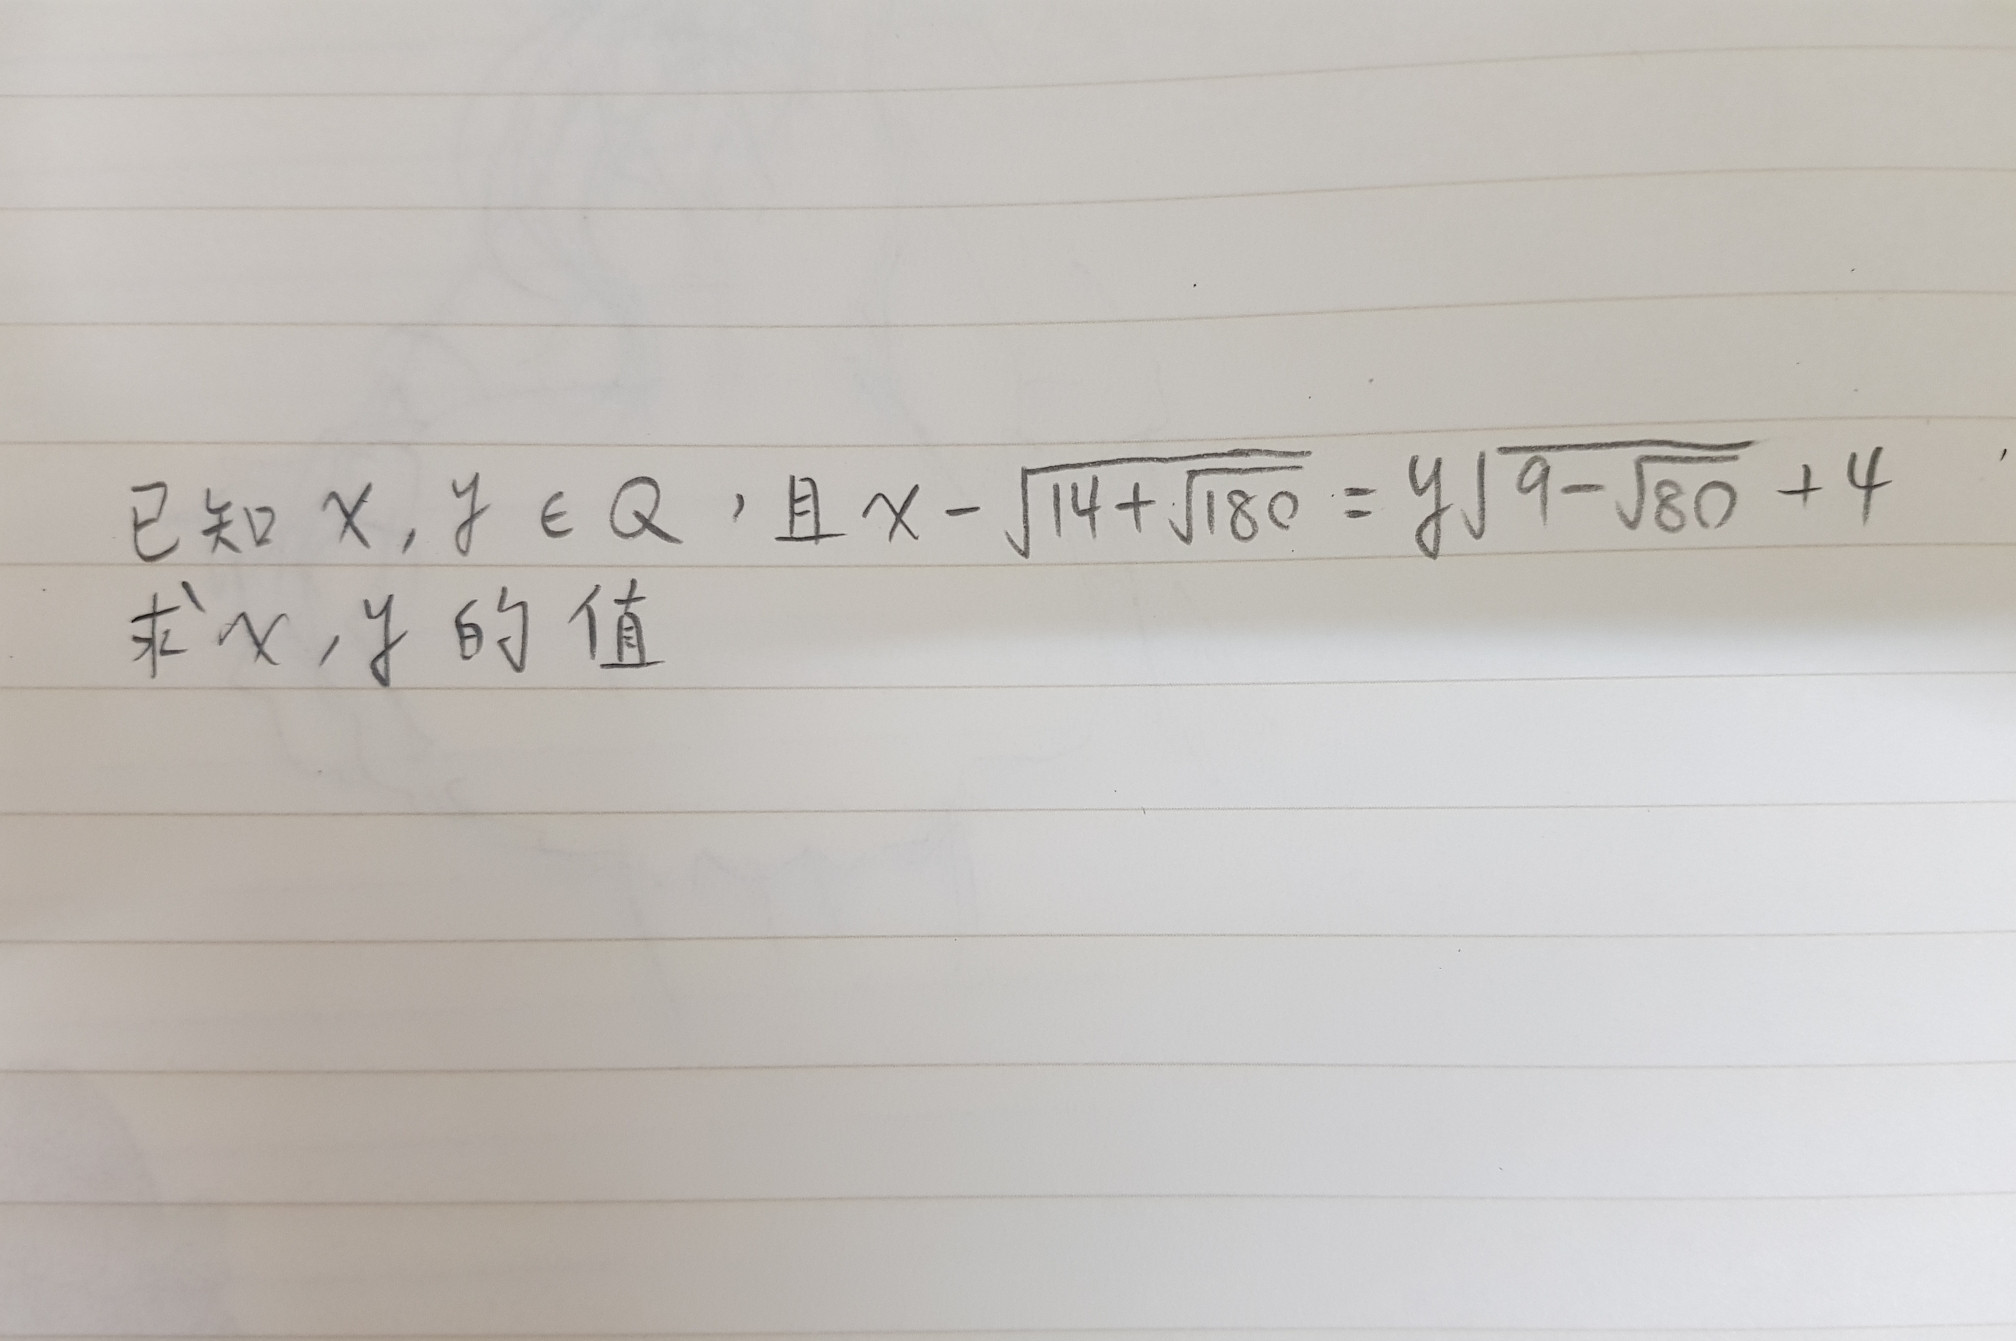 已知 x, y ∈ Q，且 x - √(14+√180) = y√(9-√80) + 4
求 x, y 的值